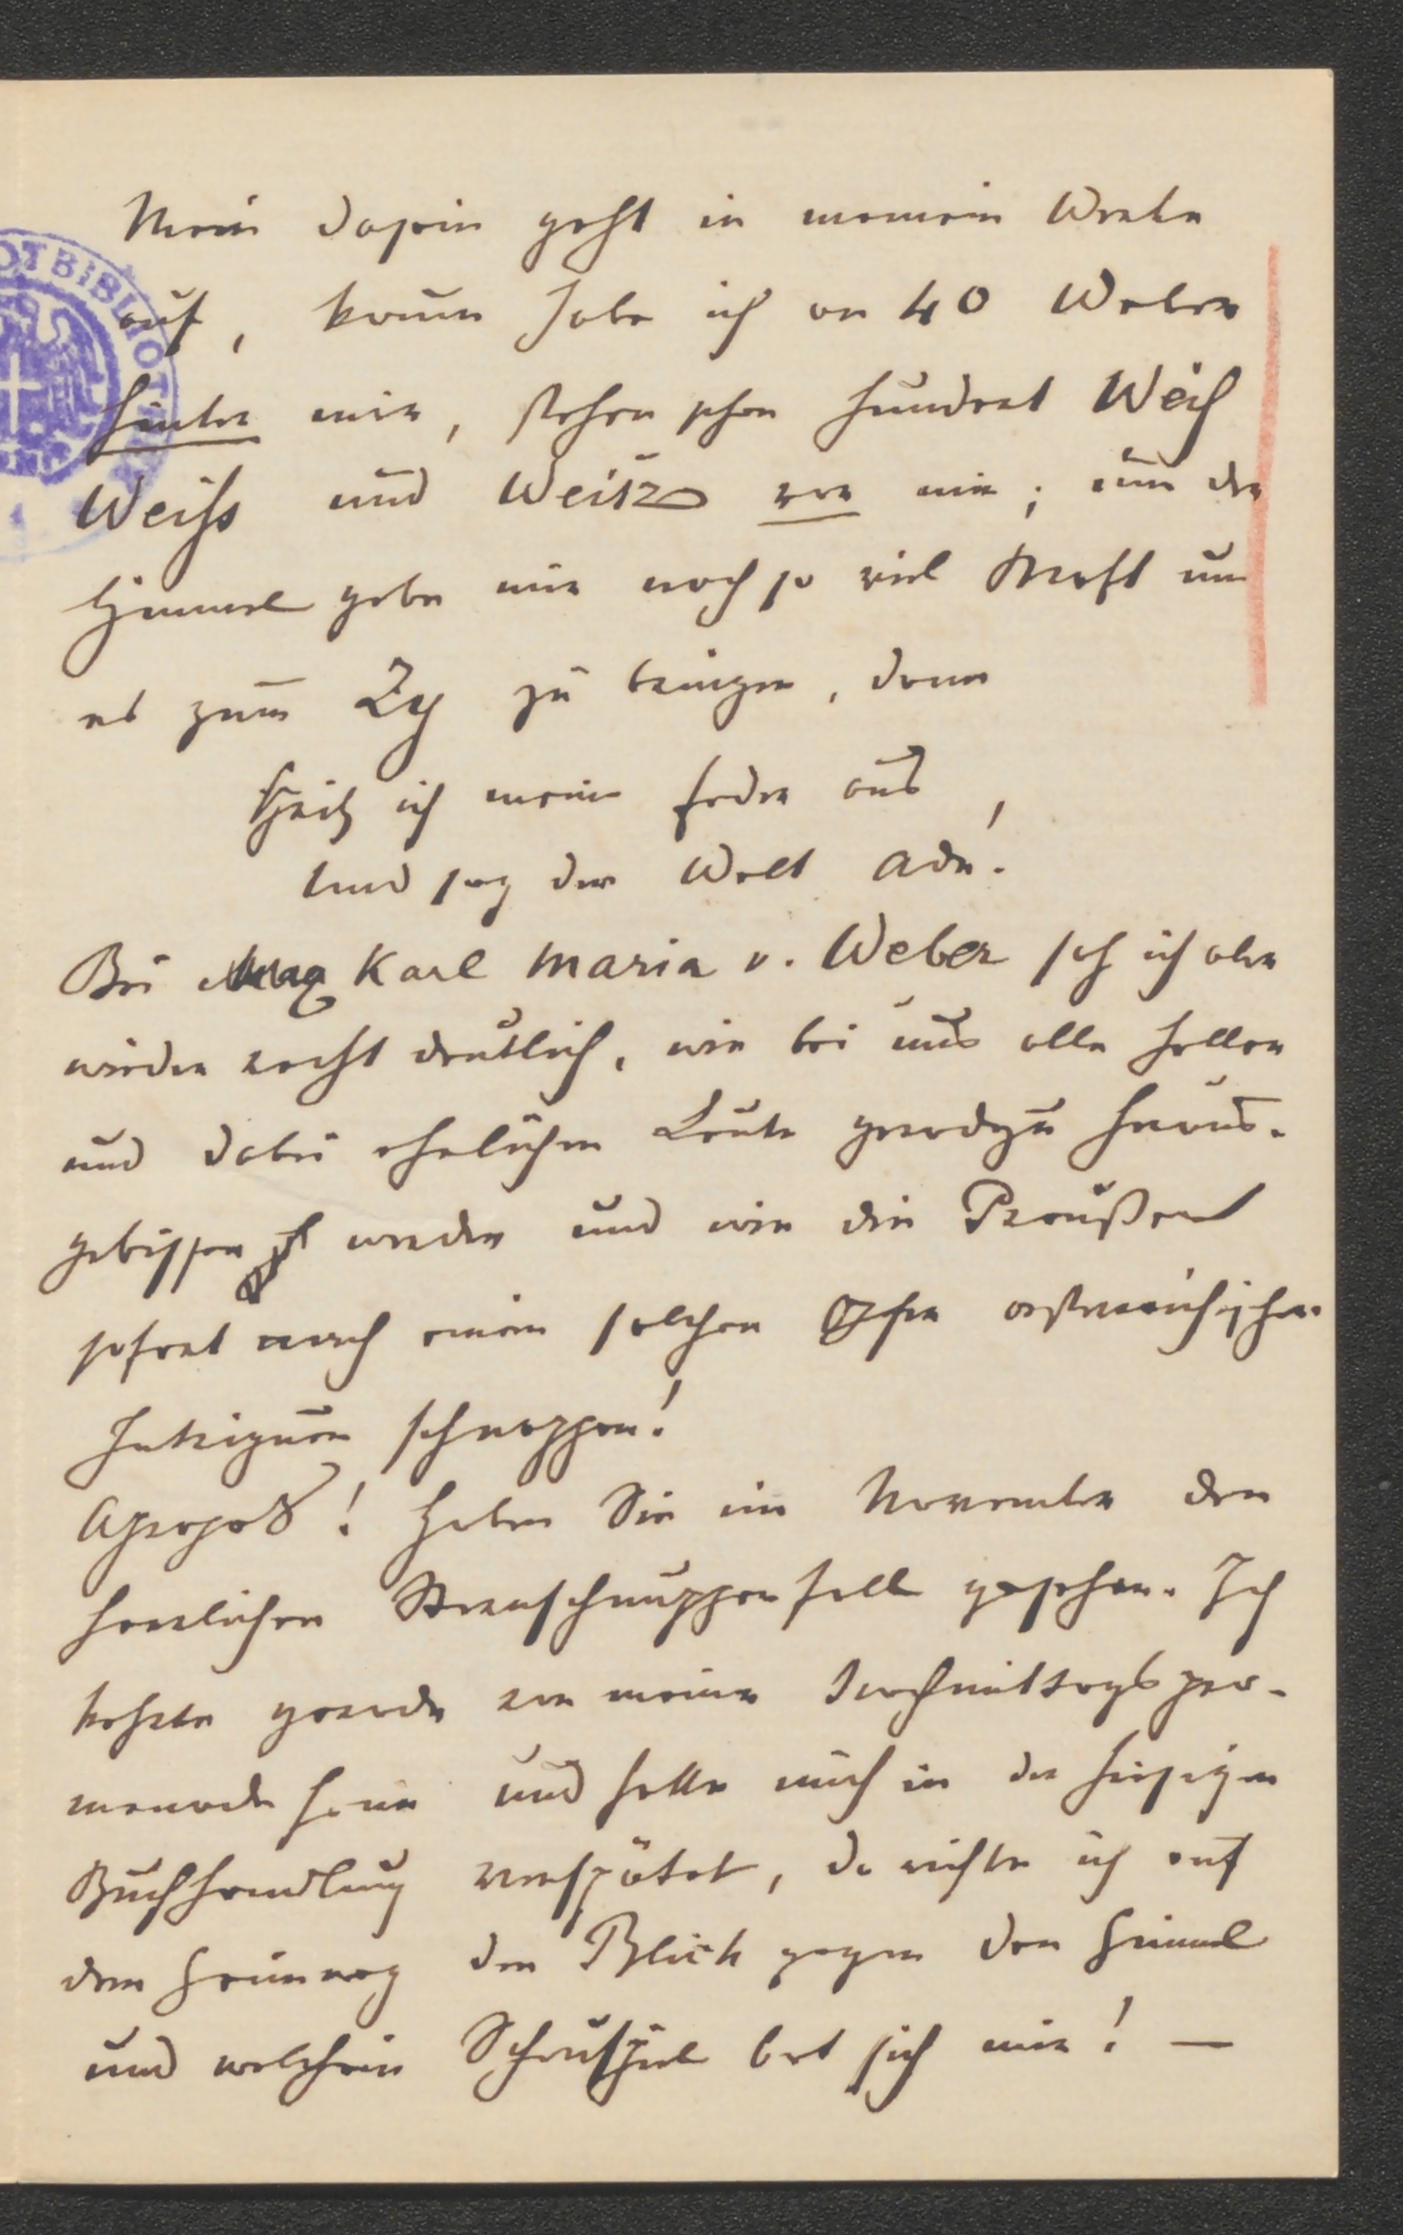 Mein Dasein geht in meinem Werke
auf, kaum habe ich an 40 Weber
hinter mir, stehen schon hundert Weiß
Weiss und Weitz vor mir; nun der
Himmel gebe mir noch so viel Kraft um
es zum Zy zu bringen, dann
Spritz ich meine Feder aus,
Und sag der Welt Ade!
Bei Max Karl Maria v. Weber seh ich aber
wieder recht deutlich, wie bei uns alle hellen
und dabei ehrlichen Leute geradezu heraus-
gebissen werden und wie die Preußen
sofort nach einem solchen Opfer österreichischer
Intriguen schnappen!
Apropos! Haben Sie im November den
herrlichen Sternschnuppenfall gesehen. Ich
kehrte gerade von meiner Nachmittagspro-
menade heim und hatte mich in der hiesigen
Buchhandlung verspätet, da richte ich auf
dem Heimweg den Blick gegen den Himmel
und welch ein Schauspiel bot sich mir! —
OTBIBLIOT